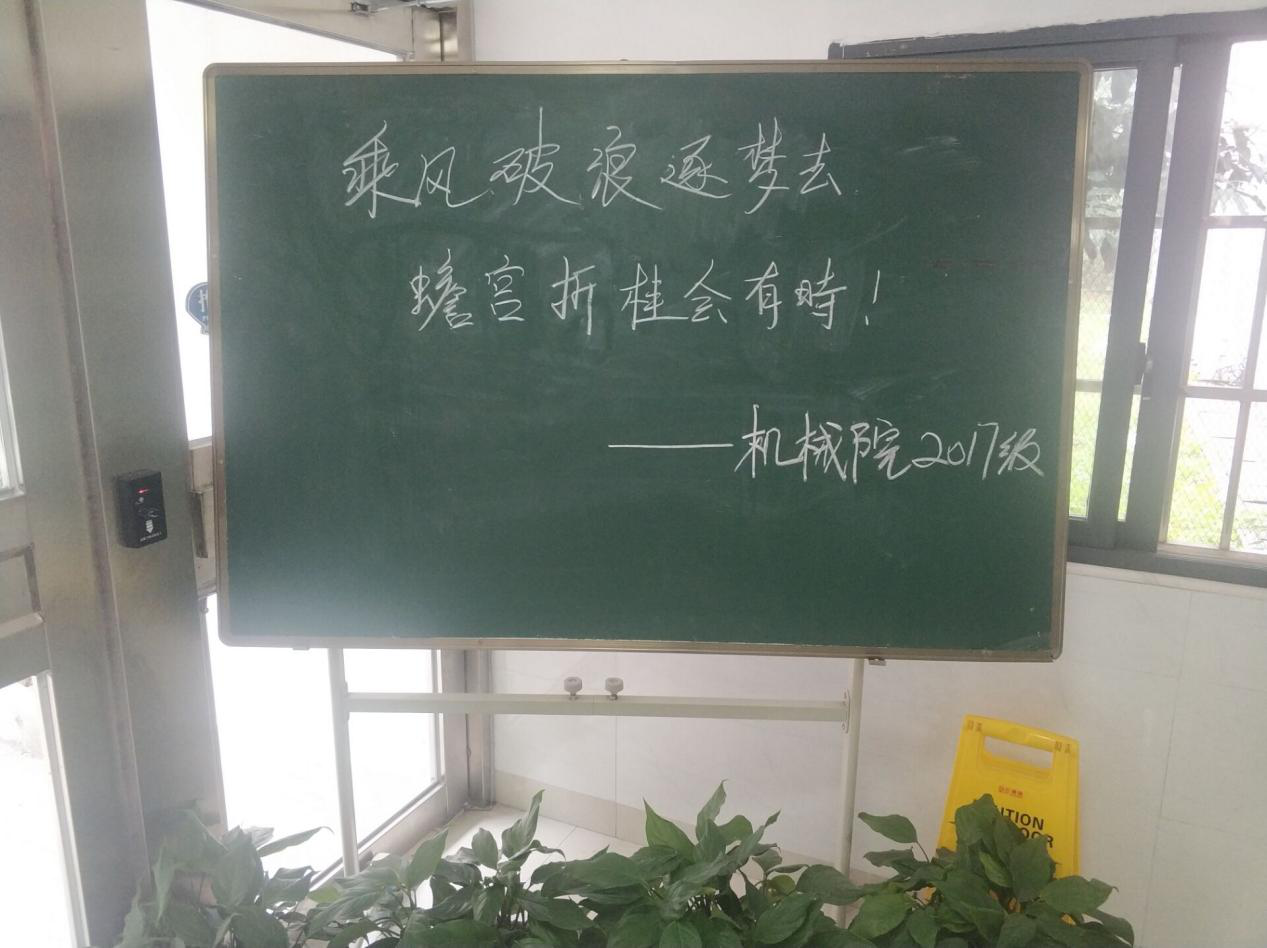 乘风破浪逐梦去
蟾宫折桂会有時!
——机械院2017级